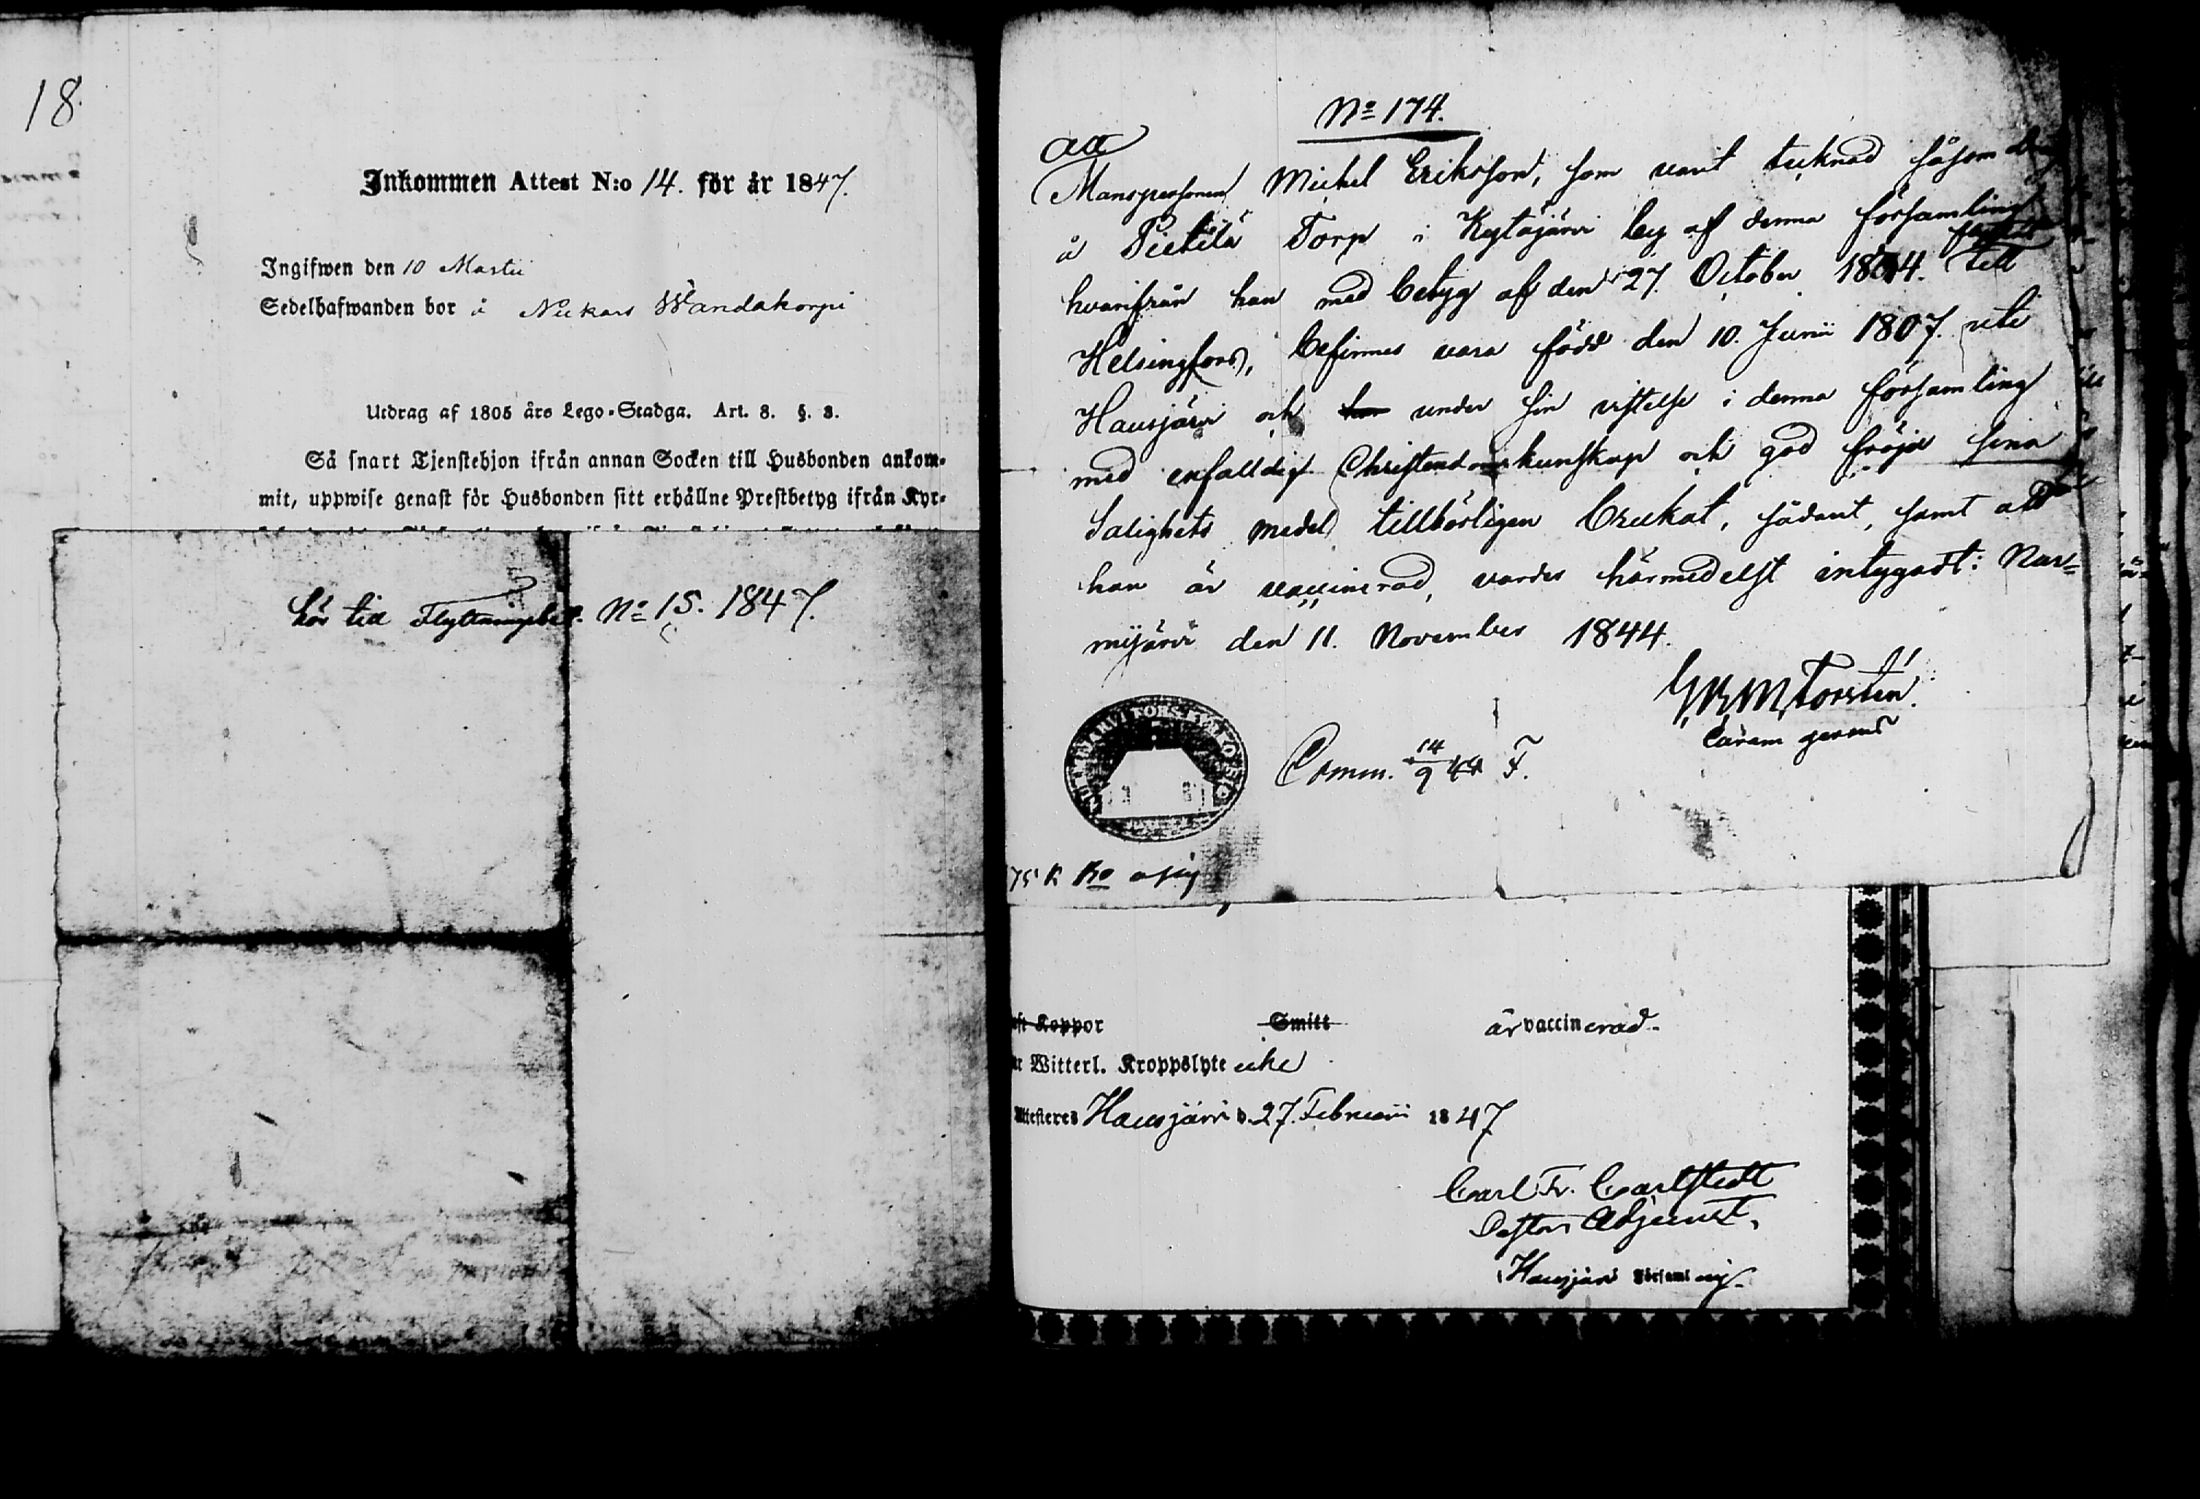 18.
Inkommen Attest N:o 14. för år 1847.
Ingifwen den 10 Martii
Sedelhafwanden bor å Nickars Wandakorpi
Utdrag af 1805 års Lego-Stadga. Art. 8. §. 3.
Så snart Tjenstehjon ifrån annan Socken till Husbonden ankom-
mit, uppwise genast för Husbonden sitt erhållne Prestbetyg ifrån Kyr-
hör till Flyttningsbet. No 15. 1847.
No 174.
Att
Manspersonen Michel Eriksson, som varit tecknad såsom dräng
å Pietilä Torp i Kytäjärvi by af denna församling
hvarifrån han med betyg af den 27. October 1844. till
Helsingfors, befinnes vara född den 10. Junii 1807. uti
Hausjärvi och han under sin vistelse i denna församling
med enfalldig Christendomskunskap och god fräjd sina
Salighets medel tillbörligen brukat, sådant, samt att
han är vaccinerad, varder härmedelst intygadt: Nur-
mijärvi den 11. November 1844.
Torstén.
Curam gerens
Comm. 14/9 44 F.
75 K Ko
Koppor Smitt är vaccinerad.
Witterl. Kroppslyte icke
Attesteres Hausjärvi d. 27. Februarii 1847
Carl Fr. Carlstedt
Pastors Adjunct.
i Hausjärvi Församling.